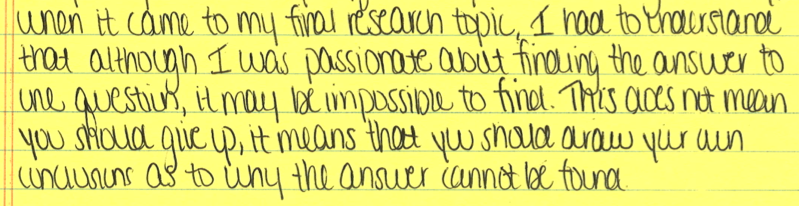 when it came to my final research topic, I had to understand
that although I was passionate about finding the answer to
one question, it may be impossible to find. This does not mean
you should give up, it means that you should draw your own
conclusions as to why the answer cannot be found.